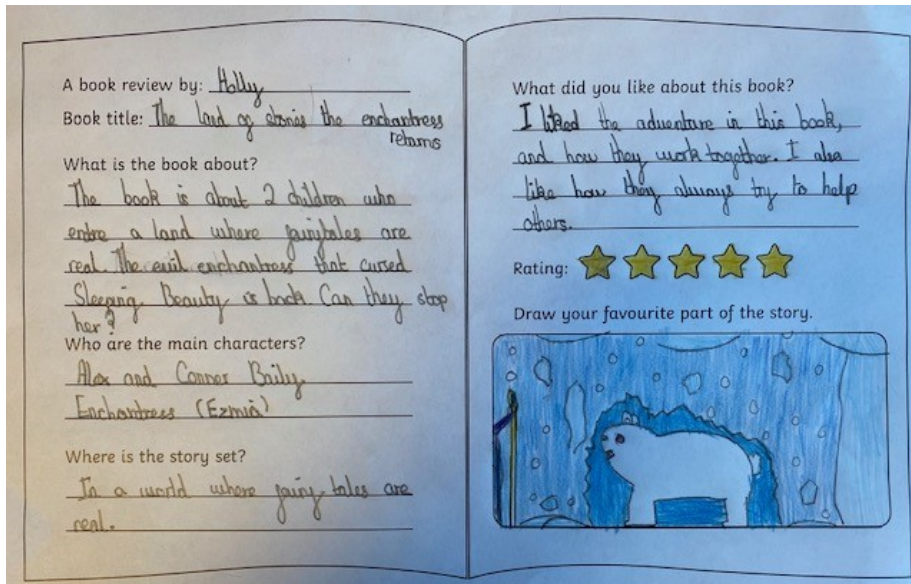 A book review by: Holly
Book title: The land of stories the enchantress
returns
What is the book about?
The book is about 2 children who
entre a land where fairytales are
real. The evil enchantress that cursed
Sleeping Beauty is back. Can they stop
her?
Who are the main characters?
Alex and Conner Baily
Enchantress (Ezmia)
Where is the story set?
In a world where fairy tales are
real.
What did you like about this book?
I liked the adventure in this book,
and how they work together. I also
like how they always try to help
others.
Rating:
Draw your favourite part of the story.